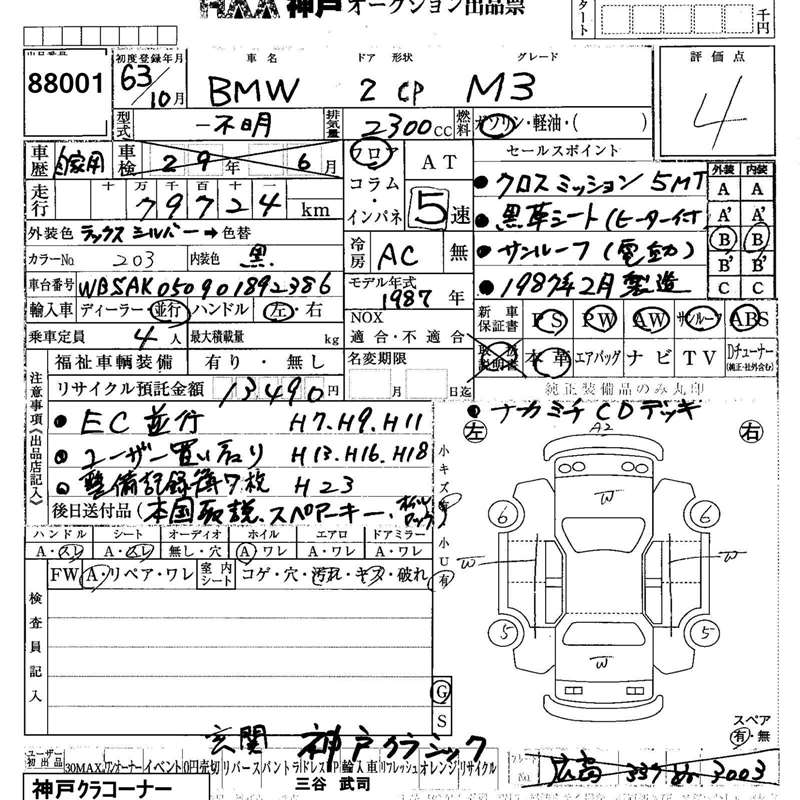 HAA 神戸 オークション出品票
スタート 千円
出品番号 88001
初度登録年月 63/10月
車名 BMW
ドア 形状 2 CP
グレード M3
評価点 4
型式 一不明
排気量 2300CC
燃料 ガソリン・軽油・( )
車歴 自家用
車検 29年 6月
フロア コラム・インパネ
AT 5速
セールスポイント
● クロスミッション 5MT
● 黒革シート(ヒーター付)
● サンルーフ(電動)
● 1987年2月製造
外装 内装
A A
A' A'
B B
B' B'
C C
走行 十万千百十一 79724 km
外装色 ラックスシルバー→色替
カラーNo 203 内装色 黒
冷房 AC 無
車台番号 WBSAK050901892386
モデル年式 1987年
輸入車 ディーラー・並行 ハンドル 左・右
NOX 適合・不適合
新車保証書 PS PW AW サンルーフ ABS
乗車定員 4人 最大積載量 kg
取扱説明書 本革 エアバッグ ナビ TV Dチューナー(純正・社外含む)
純正装備品のみ丸印
福祉車輌装備 有り・無し
名変期限 月 日迄
リサイクル預託金額 13490円
● ナカミチCDデッキ
注意事項《出品店記入》
● EC並行 H7.H9.H11
● ユーザー買い取り H13.H16.H18
● 整備記録簿7枚 H23
後日送付品(本国取説.スペアーキー.ホイルロック)
小キズ有 小U有
左 右
A2
W
6 6
W W
5 5
W
ハンドル シート オーディオ ホイル エアロ ドアミラー
A・スレ A・スレ 無し・穴 A・ワレ A・ワレ A・ワレ
FW A・リペア・ワレ 室内シート コゲ・穴・汚れ・キズ・破れ
検査員記入
G
S
スペア 有・無
玄関 神戸クラシック
ユーザー初出品 30MAX ワンオーナー イベント 0円売切 リバース バントラ ドレスUP 輸入車 リフレッシュ オレンジ リサイクル
No 広島 337 ぬ 3003
神戸クラコーナー
三谷 武司